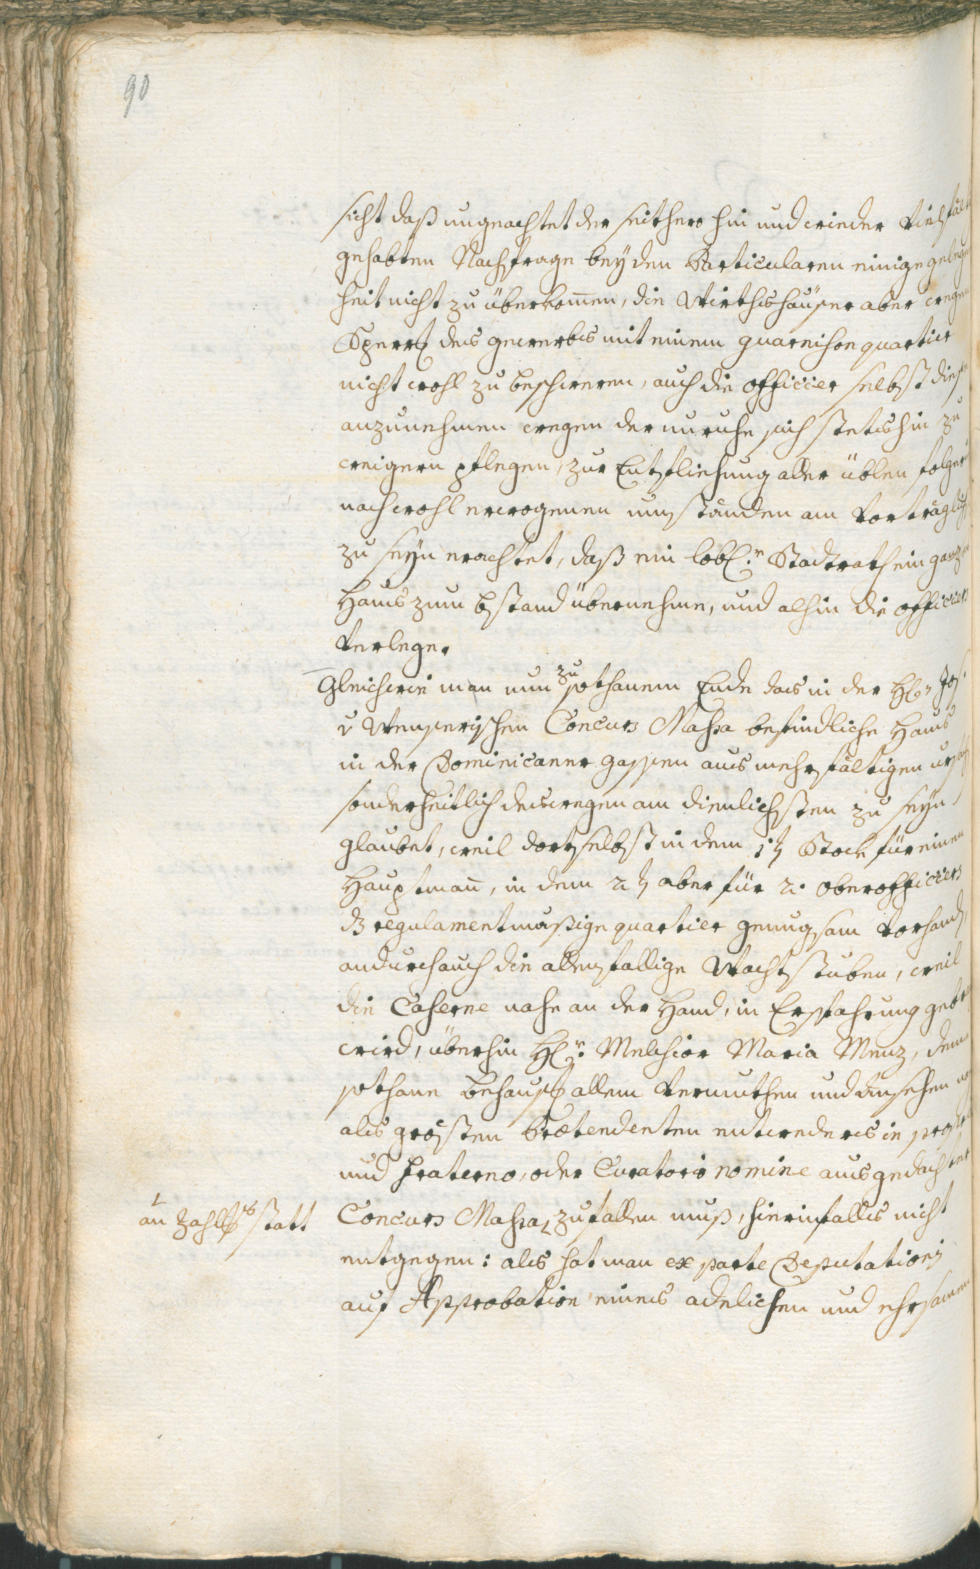 90
sicht daß ungeachtet der seithero hin und wieder vielfält
gehabten Nachfrage bey den Particularen einige gelegen
heit nicht zu überkom̅en, die Wirthshäuser aber wegen
Sperrg des gewerbs mit einem guarnison quartier
nicht wohl zu beschweren, auch die officier selbst dies
anzunehmen wegen der unruhe sich stetshin zu
weigern pflegen, zur Entfliehung aller üblen folgen
nach wohl erwogenen umständen am vorträglich
zu seyn erachtet, daß ein löbl:r Stadtrath ein ganzes
Haus zum bstand übernehme, und alhin die officiers
verlege.
Gleichwie man nun zu sothanem Ende das in der H: Jos.
v Wenserischen Concurs Massa befindliche Haus
in der Dominicaner gassen aus mehrfältigen ursach
sonderheitlich deswegen am dienlichsten zu seyn
glaubet, weil dortselbst in dem 1t Stock für einen
Hauptman̅, in dem 2t aber für 2. Oberofficiers
dz regulamentmäßige quartier genugsam vorhand
andurch auch die allenfallige Wachtstuben, weil
die Caserne nahe an der Hand, in Ersparung gebr
wird, überhin H:r Melchior Maria Menz, dem
sothane behausg allem vermuthen und ansehen
als grösten Prætendenten entweders in pro
und fraterno, oder Curatoris nomine aus gedacht
an Zahlgs statt
Concurs Massa zufallen muß, hierinfalls nicht
entgegen: als hat man ex parte Deputationis
auf Approbation eines adelichen und ehrsamen